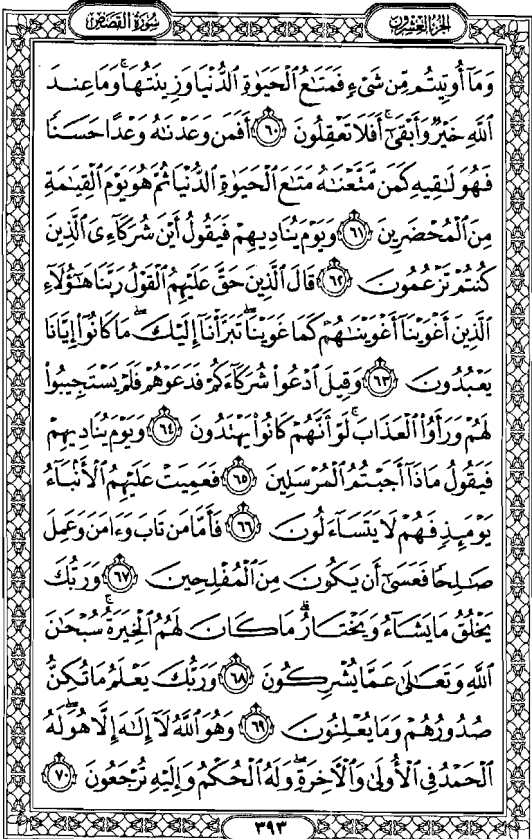 سُورَةُ القَصَصِ
الجُزْءُ العِشْرُونَ
وَمَآ أُوتِيتُم مِّن شَيْءٍ فَمَتَٰعُ ٱلْحَيَوٰةِ ٱلدُّنْيَا وَزِينَتُهَا ۚ وَمَا عِندَ
ٱللَّهِ خَيْرٌ وَأَبْقَىٰٓ ۚ أَفَلَا تَعْقِلُونَ ٦٠ أَفَمَن وَعَدْنَٰهُ وَعْدًا حَسَنًا
فَهُوَ لَٰقِيهِ كَمَن مَّتَّعْنَٰهُ مَتَٰعَ ٱلْحَيَوٰةِ ٱلدُّنْيَا ثُمَّ هُوَ يَوْمَ ٱلْقِيَٰمَةِ
مِنَ ٱلْمُحْضَرِينَ ٦١ وَيَوْمَ يُنَادِيهِمْ فَيَقُولُ أَيْنَ شُرَكَآءِىَ ٱلَّذِينَ
كُنتُمْ تَزْعُمُونَ ٦٢ قَالَ ٱلَّذِينَ حَقَّ عَلَيْهِمُ ٱلْقَوْلُ رَبَّنَا هَٰٓؤُلَآءِ
ٱلَّذِينَ أَغْوَيْنَآ أَغْوَيْنَٰهُمْ كَمَا غَوَيْنَا ۖ تَبَرَّأْنَآ إِلَيْكَ ۖ مَا كَانُوٓا۟ إِيَّانَا
يَعْبُدُونَ ٦٣ وَقِيلَ ٱدْعُوا۟ شُرَكَآءَكُمْ فَدَعَوْهُمْ فَلَمْ يَسْتَجِيبُوا۟
لَهُمْ وَرَأَوُا۟ ٱلْعَذَابَ ۚ لَوْ أَنَّهُمْ كَانُوا۟ يَهْتَدُونَ ٦٤ وَيَوْمَ يُنَادِيهِمْ
فَيَقُولُ مَاذَآ أَجَبْتُمُ ٱلْمُرْسَلِينَ ٦٥ فَعَمِيَتْ عَلَيْهِمُ ٱلْأَنۢبَآءُ
يَوْمَئِذٍ فَهُمْ لَا يَتَسَآءَلُونَ ٦٦ فَأَمَّا مَن تَابَ وَءَامَنَ وَعَمِلَ
صَٰلِحًا فَعَسَىٰٓ أَن يَكُونَ مِنَ ٱلْمُفْلِحِينَ ٦٧ وَرَبُّكَ
يَخْلُقُ مَا يَشَآءُ وَيَخْتَارُ ۗ مَا كَانَ لَهُمُ ٱلْخِيَرَةُ ۚ سُبْحَٰنَ
ٱللَّهِ وَتَعَٰلَىٰ عَمَّا يُشْرِكُونَ ٦٨ وَرَبُّكَ يَعْلَمُ مَا تُكِنُّ
صُدُورُهُمْ وَمَا يُعْلِنُونَ ٦٩ وَهُوَ ٱللَّهُ لَآ إِلَٰهَ إِلَّا هُوَ ۖ لَهُ
ٱلْحَمْدُ فِى ٱلْأُولَىٰ وَٱلْءَاخِرَةِ ۖ وَلَهُ ٱلْحُكْمُ وَإِلَيْهِ تُرْجَعُونَ ٧٠
٣٩٣